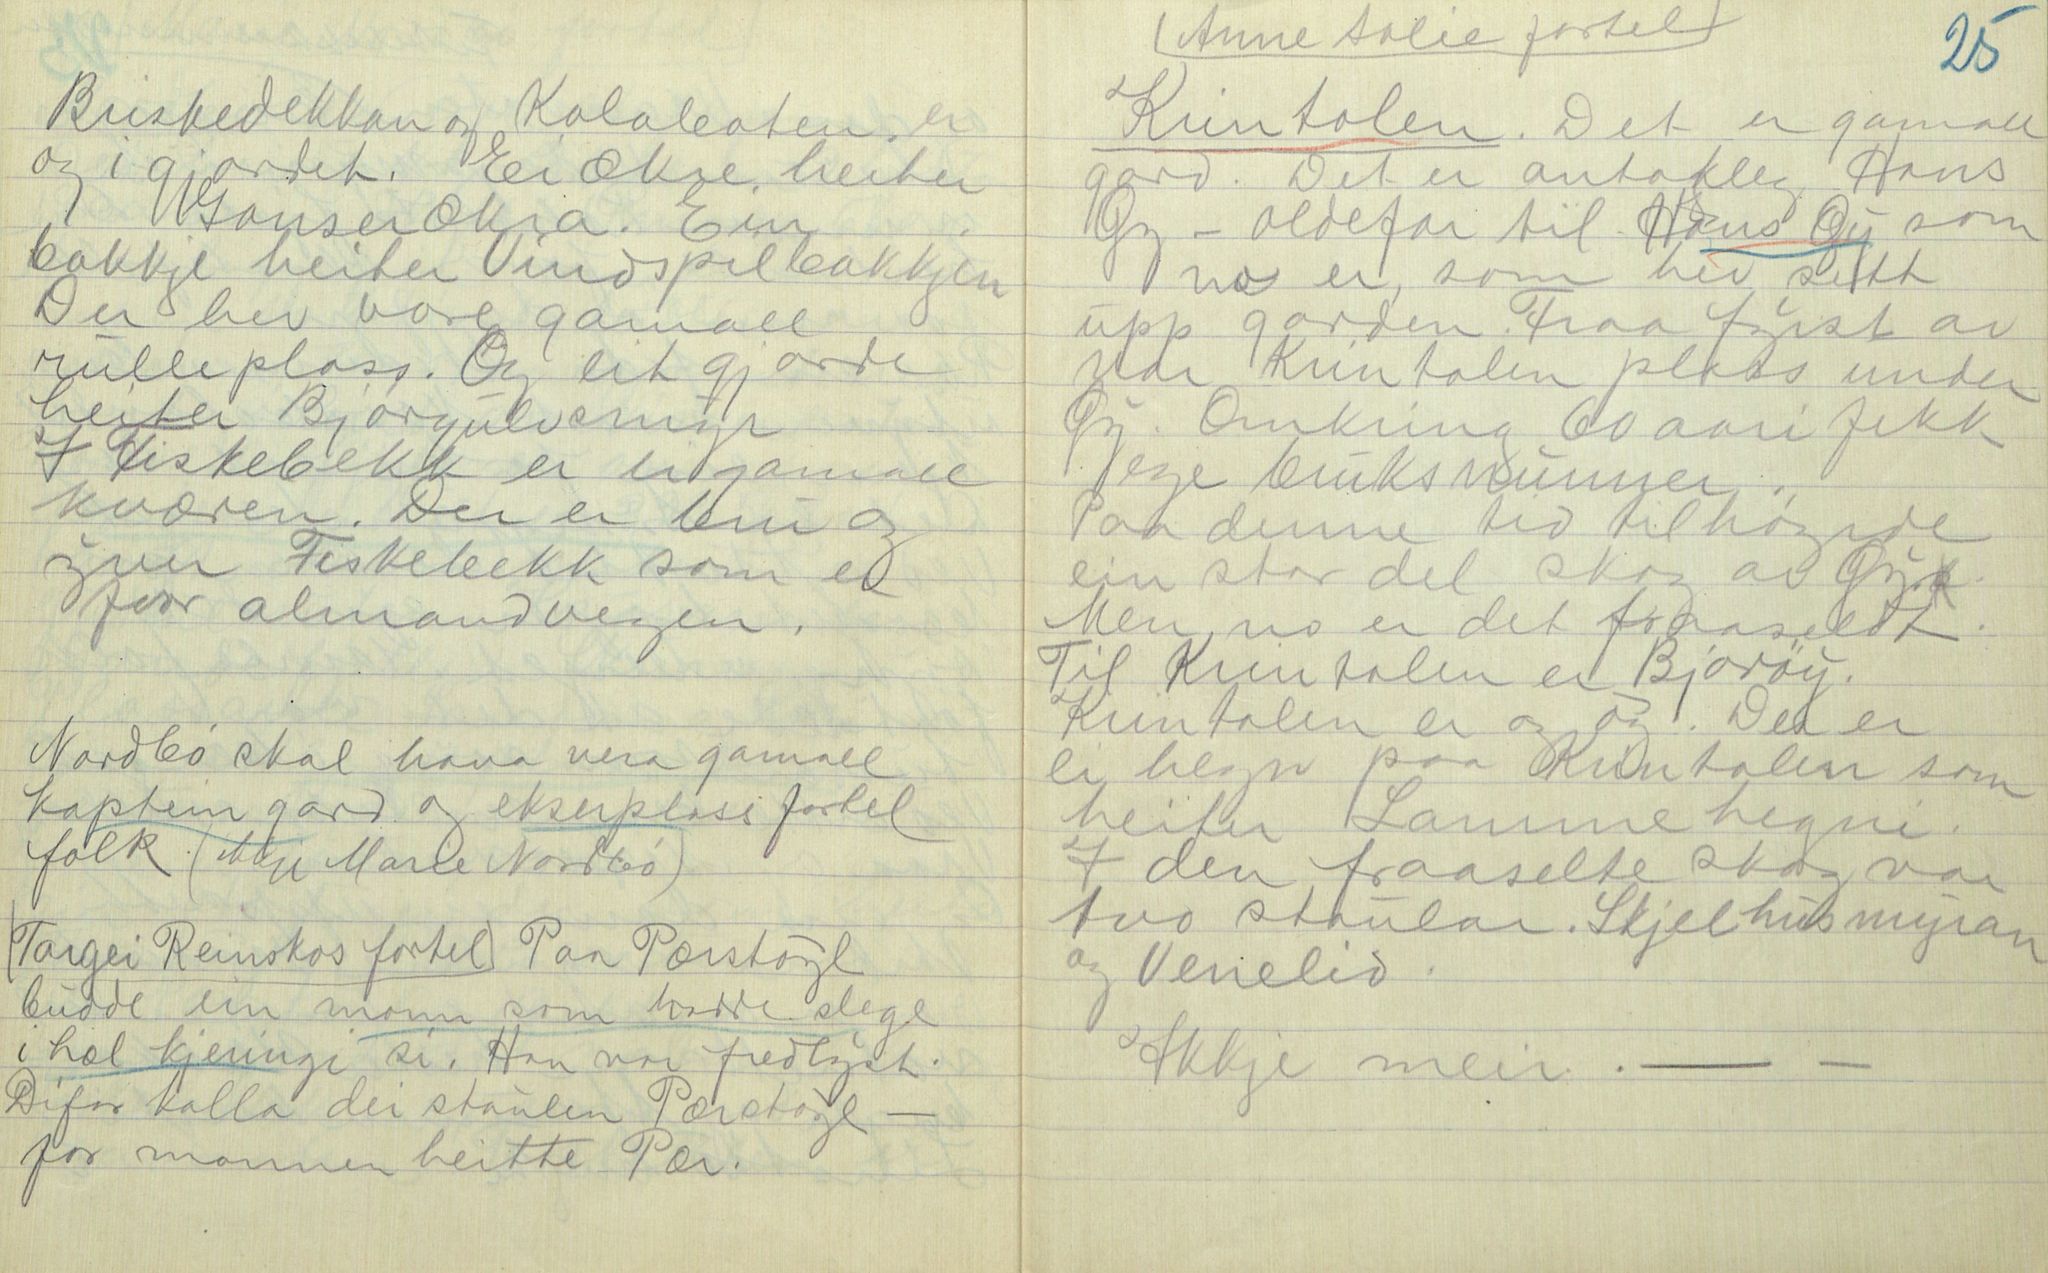 Briskedekkan og Kolabaten. er
og i gjordet. Ei Ækre, heiter
Gonserækra. Ein
bakkje heiter Vindspelbakkjen
Der hev vore gamall
rulleplass. Og eit gjorde
heiter Bjørgulvsmyr
I Fiskebekk er ei gamall
kværen. Der er bru og
yver Fiskebekk som er
for almandvegen.
Nordbó skal hava vera gamall
kaptein gard og ekserplass fortel
folk (Marie Nordbó)
(Targei Reinskos fortel) Paa Pærstøyl
budde ein mann som hadde slege
i hæl kjeringi si. Han var fredlyst.
Difor kalla dei staulen Pærstøyl —
for mannen heitte Pær.
(Anne Solie fortel)
25
Kvintolen. Det er gamall
gard. Det er antakleg Hans
Øy – oldefar til Hans Øy som
no er, som hev sett
upp garden. Fraa fyrst av
var Kvintolen plass under
Øy. Omkring 60 aari fekk
eige bruksnummer.
Paa denne tid tilhøyrde
ein stor del skog av Øy.
Men no er det fraaseldt.
Til Kvintolen er Bjorøy.
Kvintolen er og øy. Der er
ei hegn paa Kvintolen som
heiter Lammehegni.
I den fraaselte skog var
tvo staular. Skjelhusmyran
og Venelid.
Ikkje meir. — –